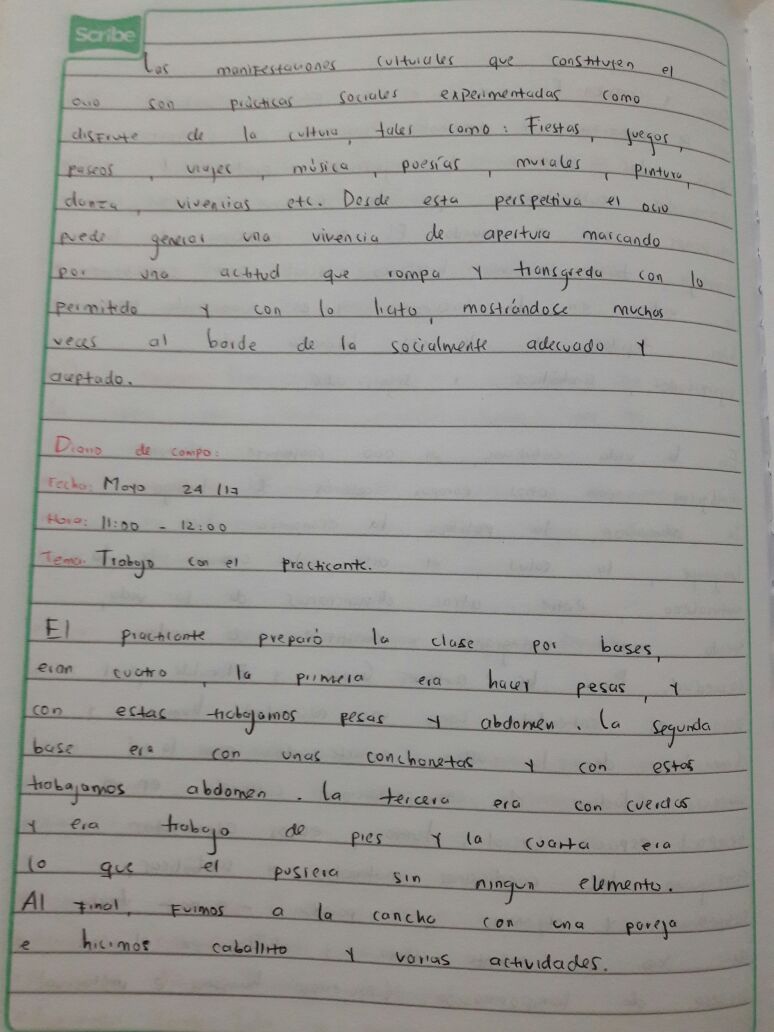 Scribe
Las manifestaciones culturales que constituyen el
ocio son prácticas sociales experimentadas como
disfrute de la cultura, tales como: Fiestas, juegos,
paseos, viajes, música, poesías, murales, pintura,
danza, vivencias etc. Desde esta perspectiva el ocio
puede generar una vivencia de apertura marcando
por una actitud que rompa y transgreda con lo
permitido y con lo licito, mostrándose muchas
veces al borde de la socialmente adecuado y
aceptado.
Diario de campo:
Fecha: Mayo 24/17
Hora: 11:00 - 12:00
Tema: Trabajo con el practicante.
El practicante preparó la clase por bases,
eran cuatro, la primera era hacer pesas, y
con estas trabajamos pesas y abdomen. la segunda
base era con unas conchonetas y con estas
trabajamos abdomen. la tercera era con cuerdas
y era trabajo de pies y la cuarta era
lo que el pusiera sin ningun elemento.
Al final, fuimos a la cancha con una pareja
e hicimos caballito y varias actividades.